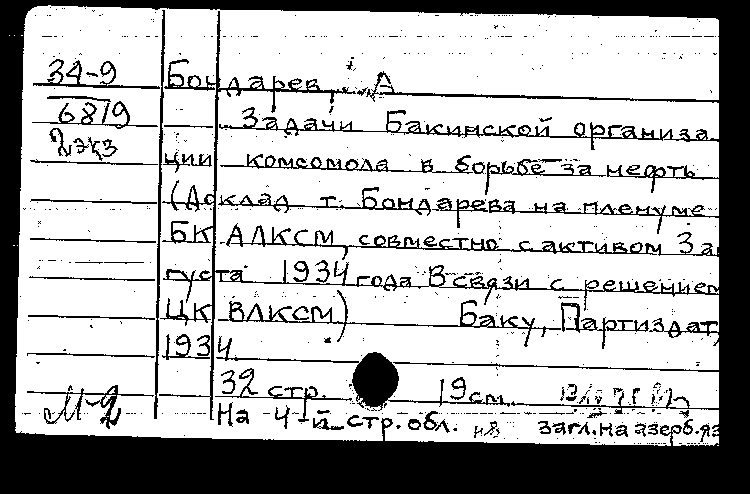 34-9 Бондарев, А
6879 Задачи Бакинской организа
2экз ции комсомола в борьбе за нефть
(Доклад т. Бондарева на пленуме
БК АЛКСМ, совместно с активом 3 ав
густа 1934 года в связи с решением
ЦК ВЛКСМ) Баку, Партиздат,
1934.
32 стр. 19см.
М-2 На 4-й стр. обл. загл. на азерб. яз